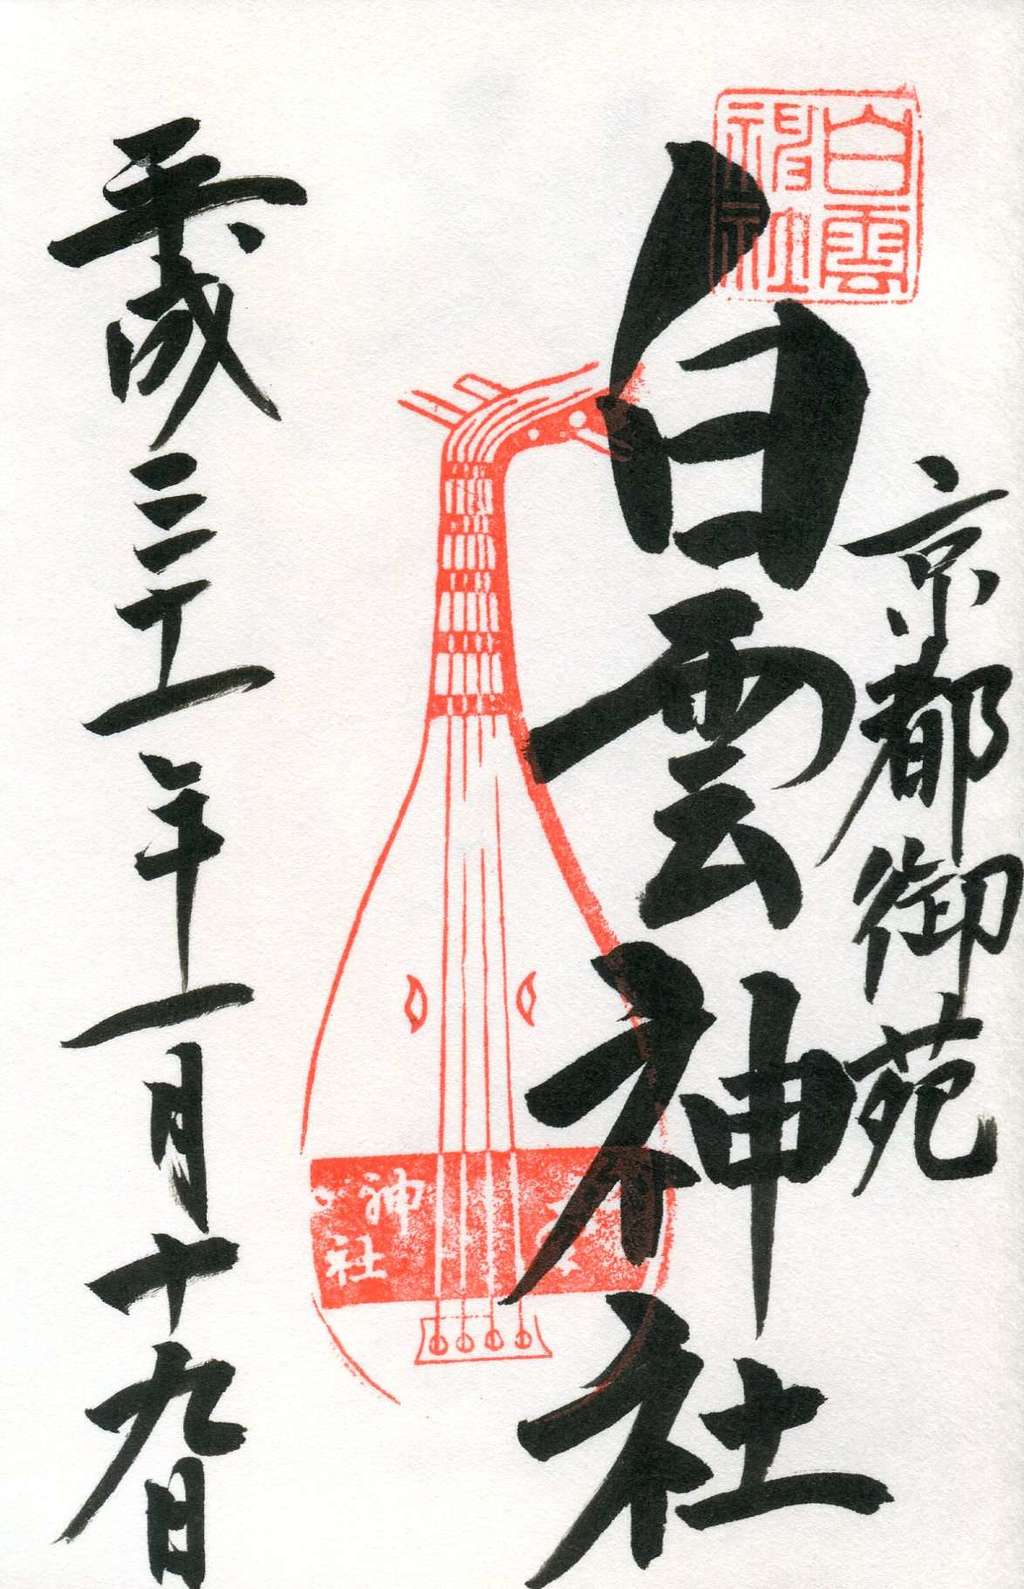 京都御苑
白雲
神社
白雲神社
神社
平成三十一年一月十九日